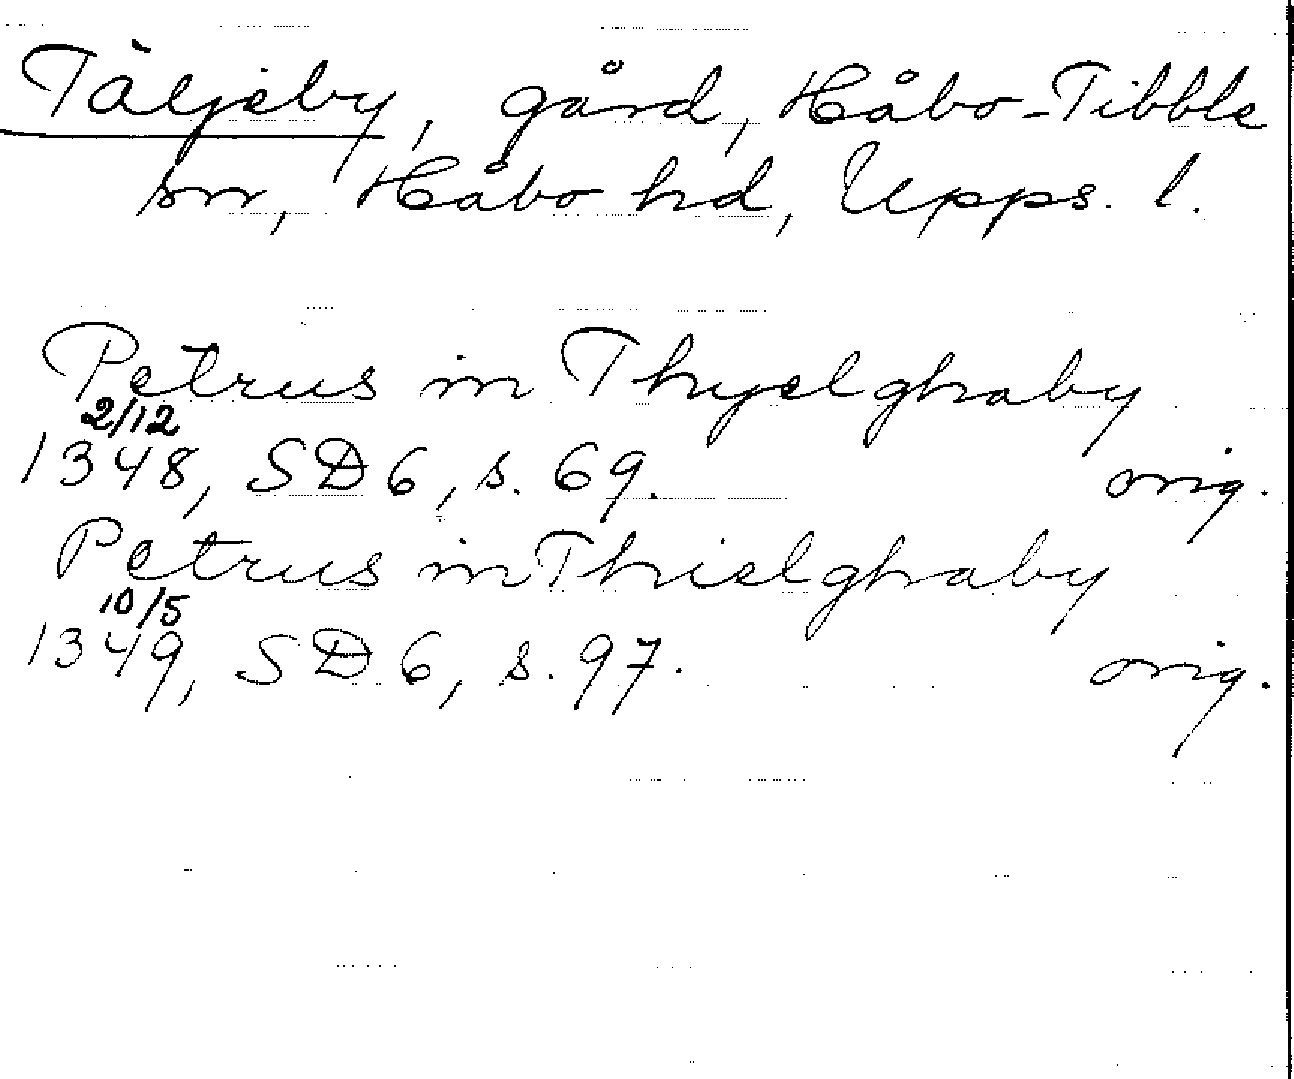 Täljeby, gård, Håbo-Tibble
sn, Håbo hd, Upps. l.
Petrus in Thyelghaby
2/12
1348, SD 6, s. 69. orig.
Petrus in Thielghaby
10/5
1349, SD 6, s. 97. orig.